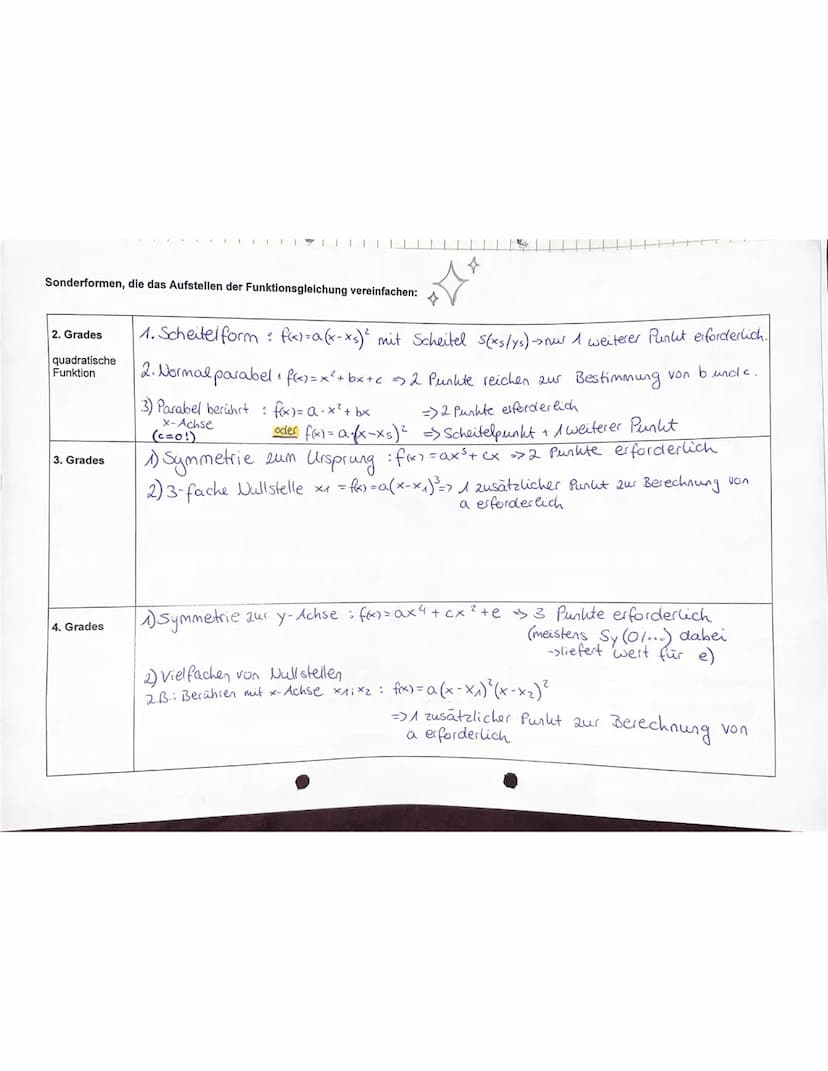 Sonderformen, die das Aufstellen der Funktionsgleichung vereinfachen:
2. Grades
quadratische
Funktion
1. Scheitelform : f(x)=a(x-xs)² mit Scheitel S(xs/ys) → nur 1 weiterer Punkt erforderlich.
2. Normalparabel : f(x)=x²+bx+c => 2 Punkte reichen zur Bestimmung von b und c.
3) Parabel berührt : f(x)=a·x²+bx => 2 Punkte erforderlich
x-Achse
(c=0!) oder f(x)=a·(x-xs)² => Scheitelpunkt + 1 weiterer Punkt
3. Grades
1) Symmetrie zum Ursprung : f(x)=ax³+cx => 2 Punkte erforderlich
2) 3-fache Nullstelle x1 = f(x)=a(x-x1)³ => 1 zusätzlicher Punkt zur Berechnung von
a erforderlich
4. Grades
1) Symmetrie zur y-Achse : f(x)=ax⁴+cx²+e => 3 Punkte erforderlich
(meistens Sy(0/...) dabei
→ liefert Wert für e)
2) Vielfachen von Nullstellen
z.B.: Berühren mit x-Achse x1; x2 : f(x)=a(x-x1)²(x-x2)²
=> 1 zusätzlicher Punkt zur Berechnung von
a erforderlich